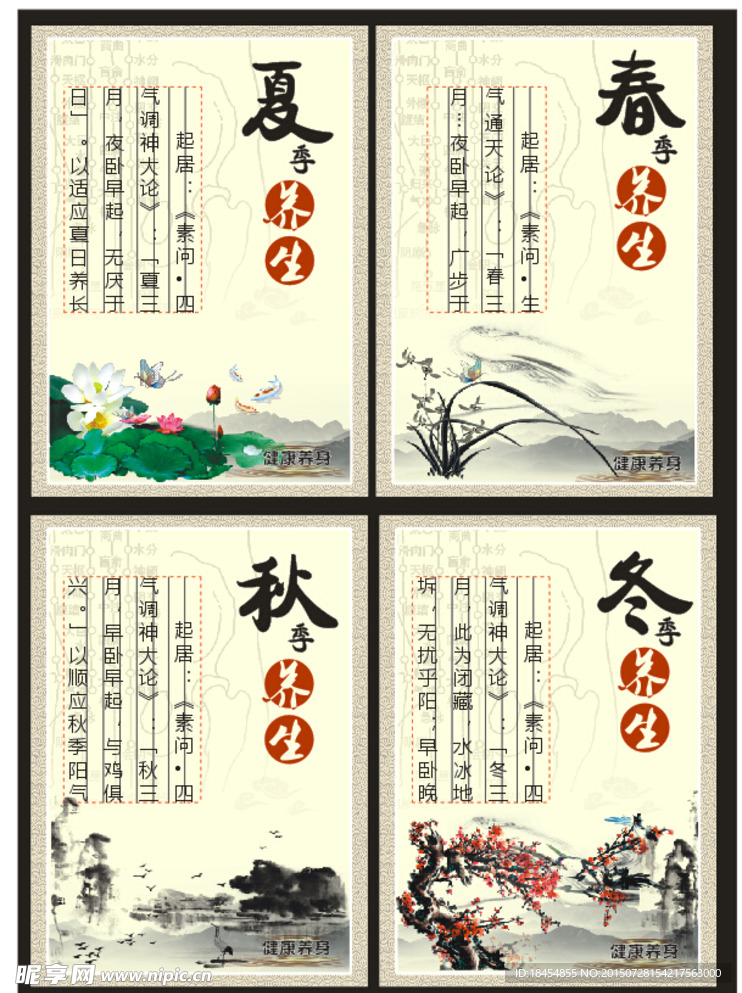 夏
季
养
生
起居：《素问•四
气调神大论》：「夏三
月，夜卧早起，无厌于
日」。以适应夏日养长
健康养身
滑肉门
水分
天枢
春
季
养
生
起居：《素问•生
气通天论》：「春三
月…夜卧早起，广步于
健康养身
滑肉门
水分
天枢
秋
季
养
生
起居：《素问•四
气调神大论》：「秋三
月，早卧早起，与鸡俱
兴。」以顺应秋季阳气
健康养身
滑肉门
商曲
水分
天枢
冬
季
养
生
起居：《素问•四
气调神大论》：「冬三
月，此为闭藏，水冰地
坼，无扰乎阳；早卧晚
健康养身
滑肉门
商曲
水分
天枢
昵享网 www.nipic.cn
ID:18454855 NO:20150728154217563000